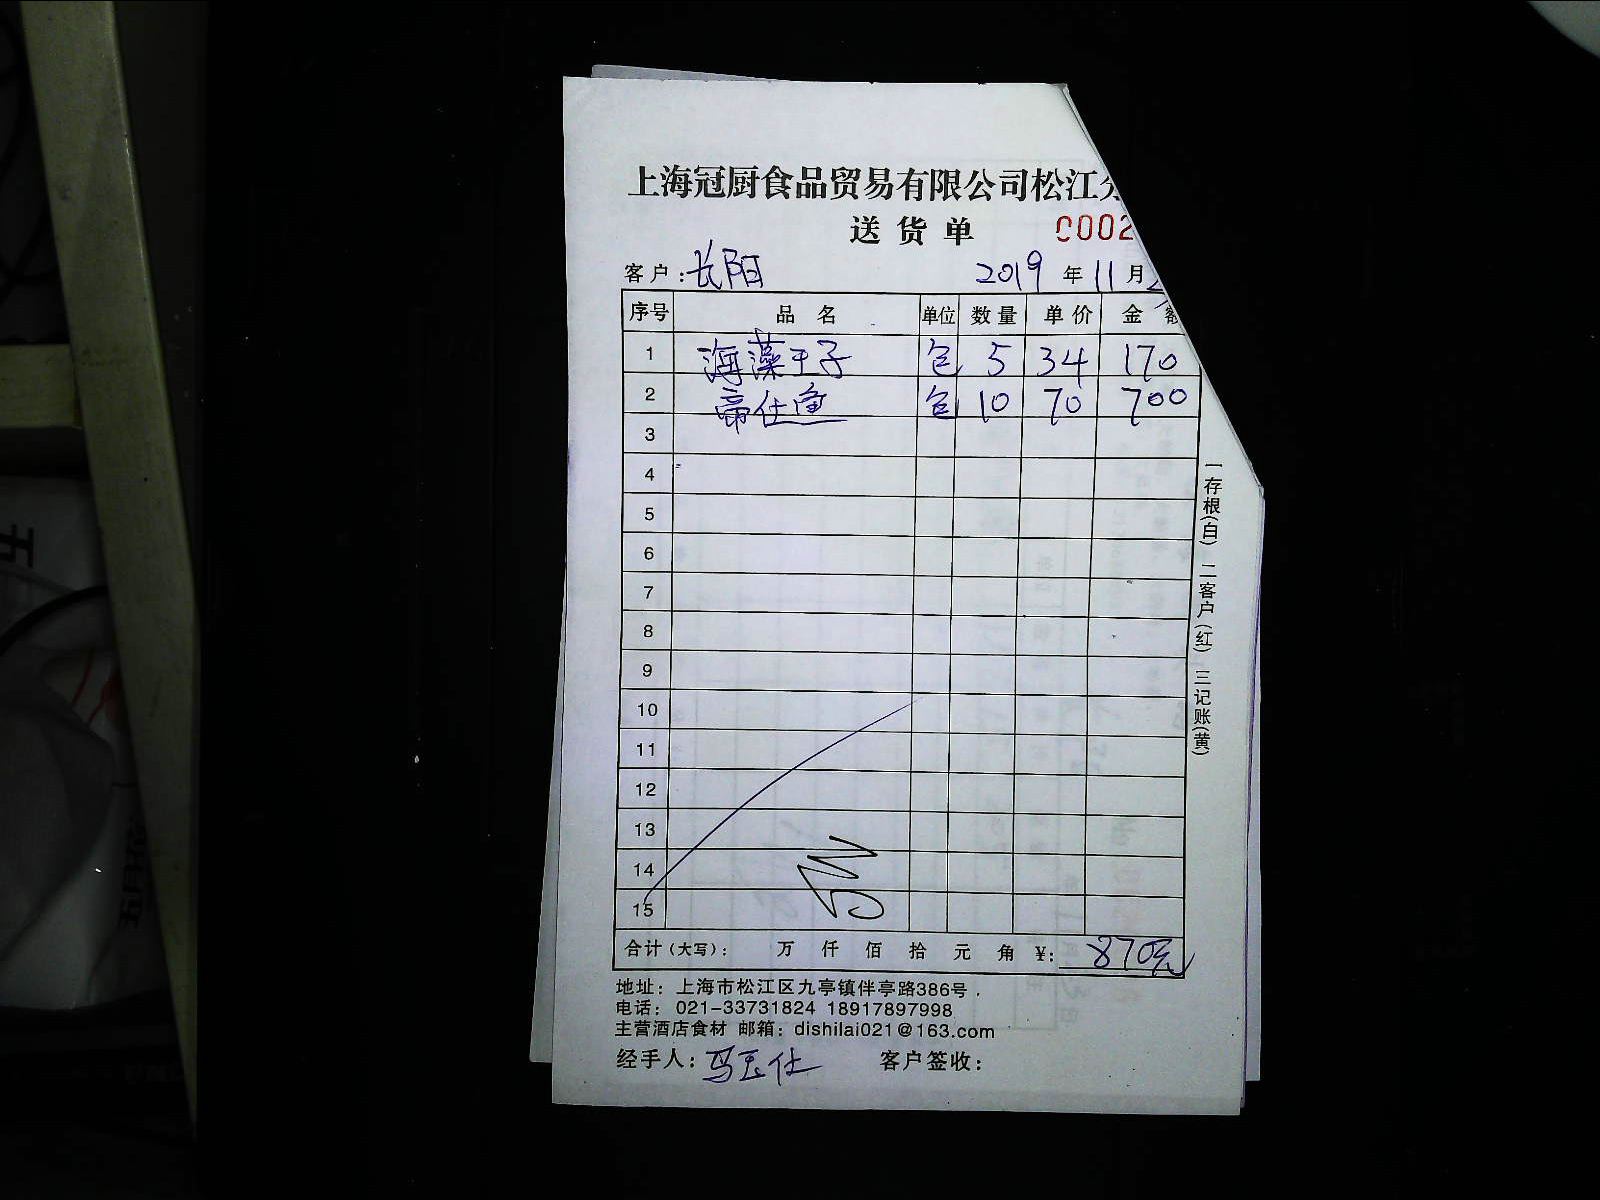 上海冠厨食品贸易有限公司松江分
送货单 0002
客户:长阳 2019年11月
序号 品名 单位 数量 单价 金额
1 海藻王子 包 5 34 170
2 帝仕鱼 包 10 70 700
3
4
5
6
7
8
9
10
11
12
13
14
15
合计(大写): 万 仟 佰 拾 元 角 ¥: 870元
地址: 上海市松江区九亭镇伴亭路386号
电话: 021-33731824 18917897998
主营酒店食材 邮箱: dishilai021@163.com
经手人:马玉仕 客户签收:
一存根(白) 二客户(红) 三记账(黄)